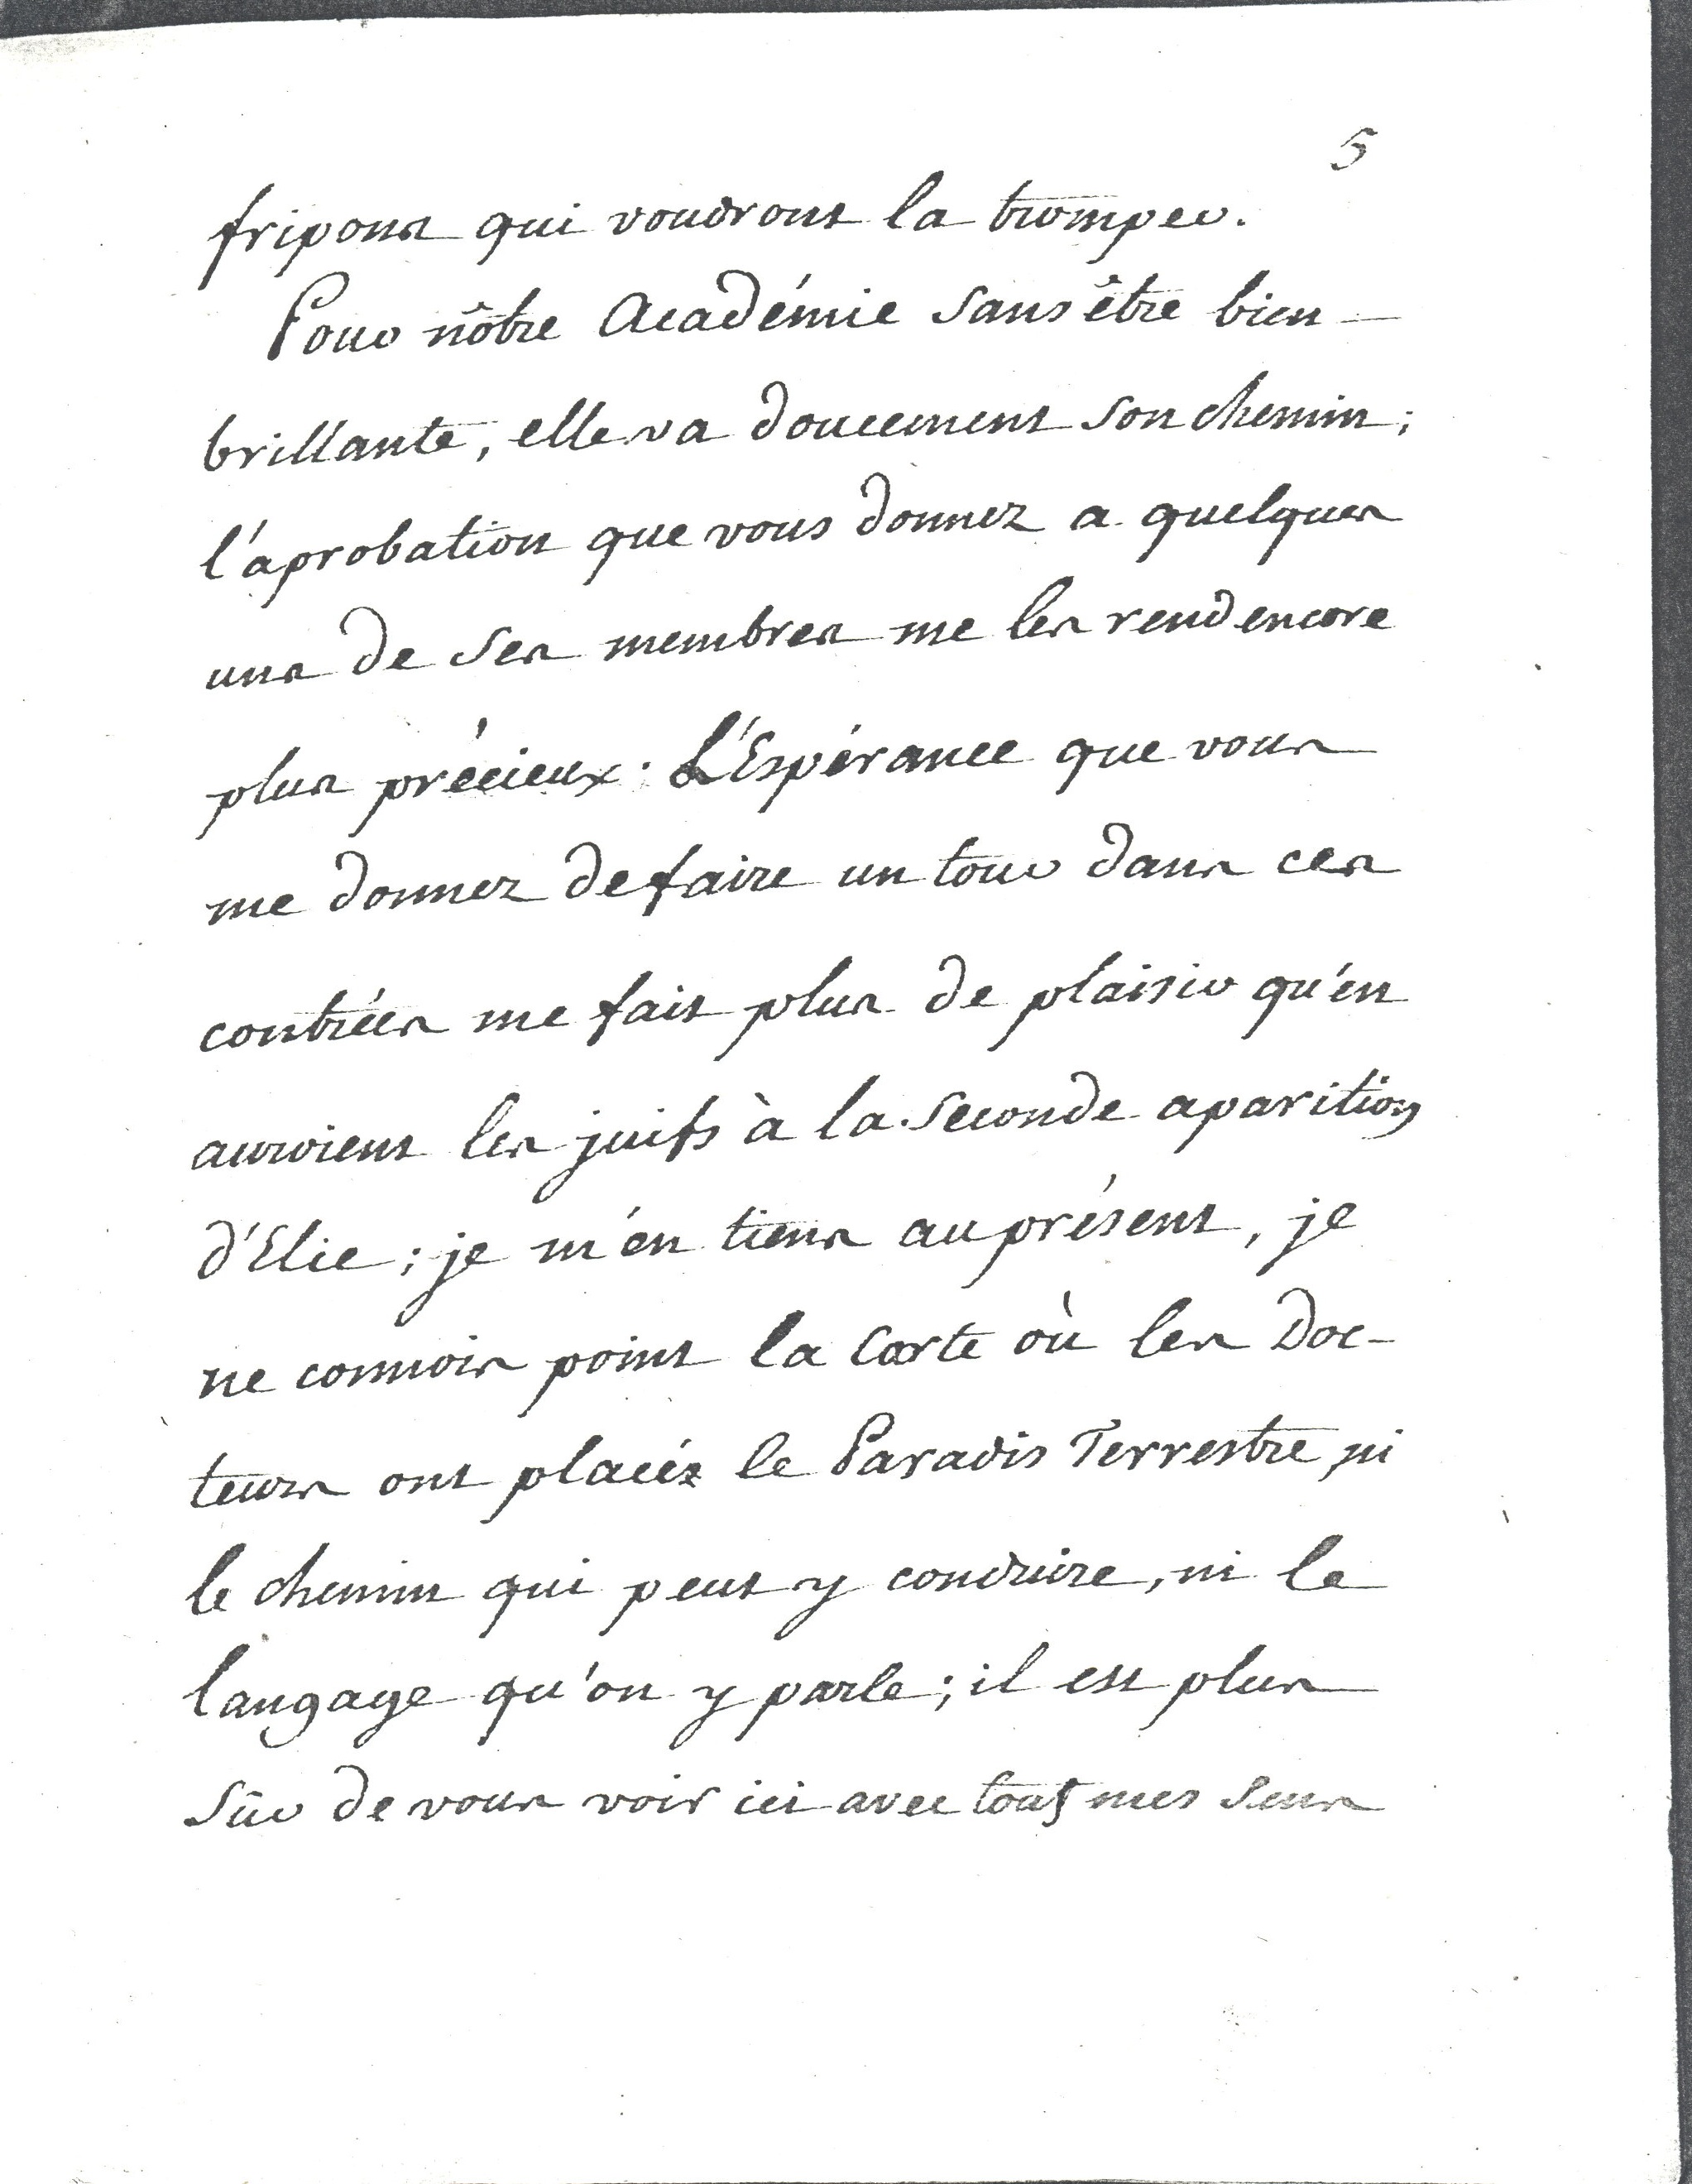 5
fripons qui voudront la tromper.
Pour nôtre Académie sans être bien
brillante, elle va doucement son chemin;
l'aprobation que vous donnez a quelques
uns de ses membres me les rend encore
plus précieux. L'Espérance que vous
me donnez de faire un tour dans ces
contrées me fait plus de plaisir qu'en
auroient les juifs à la seconde aparition
d'Elie; je m'en tiens au présent, je
ne connois point la Carte où les Doc-
teurs ont placéz le Paradis Terrestre, ni
le chemin qui peut y conduire, ni le
langage qu'on y parle; il est plus
sûr de vous voir ici avec tous mes sens